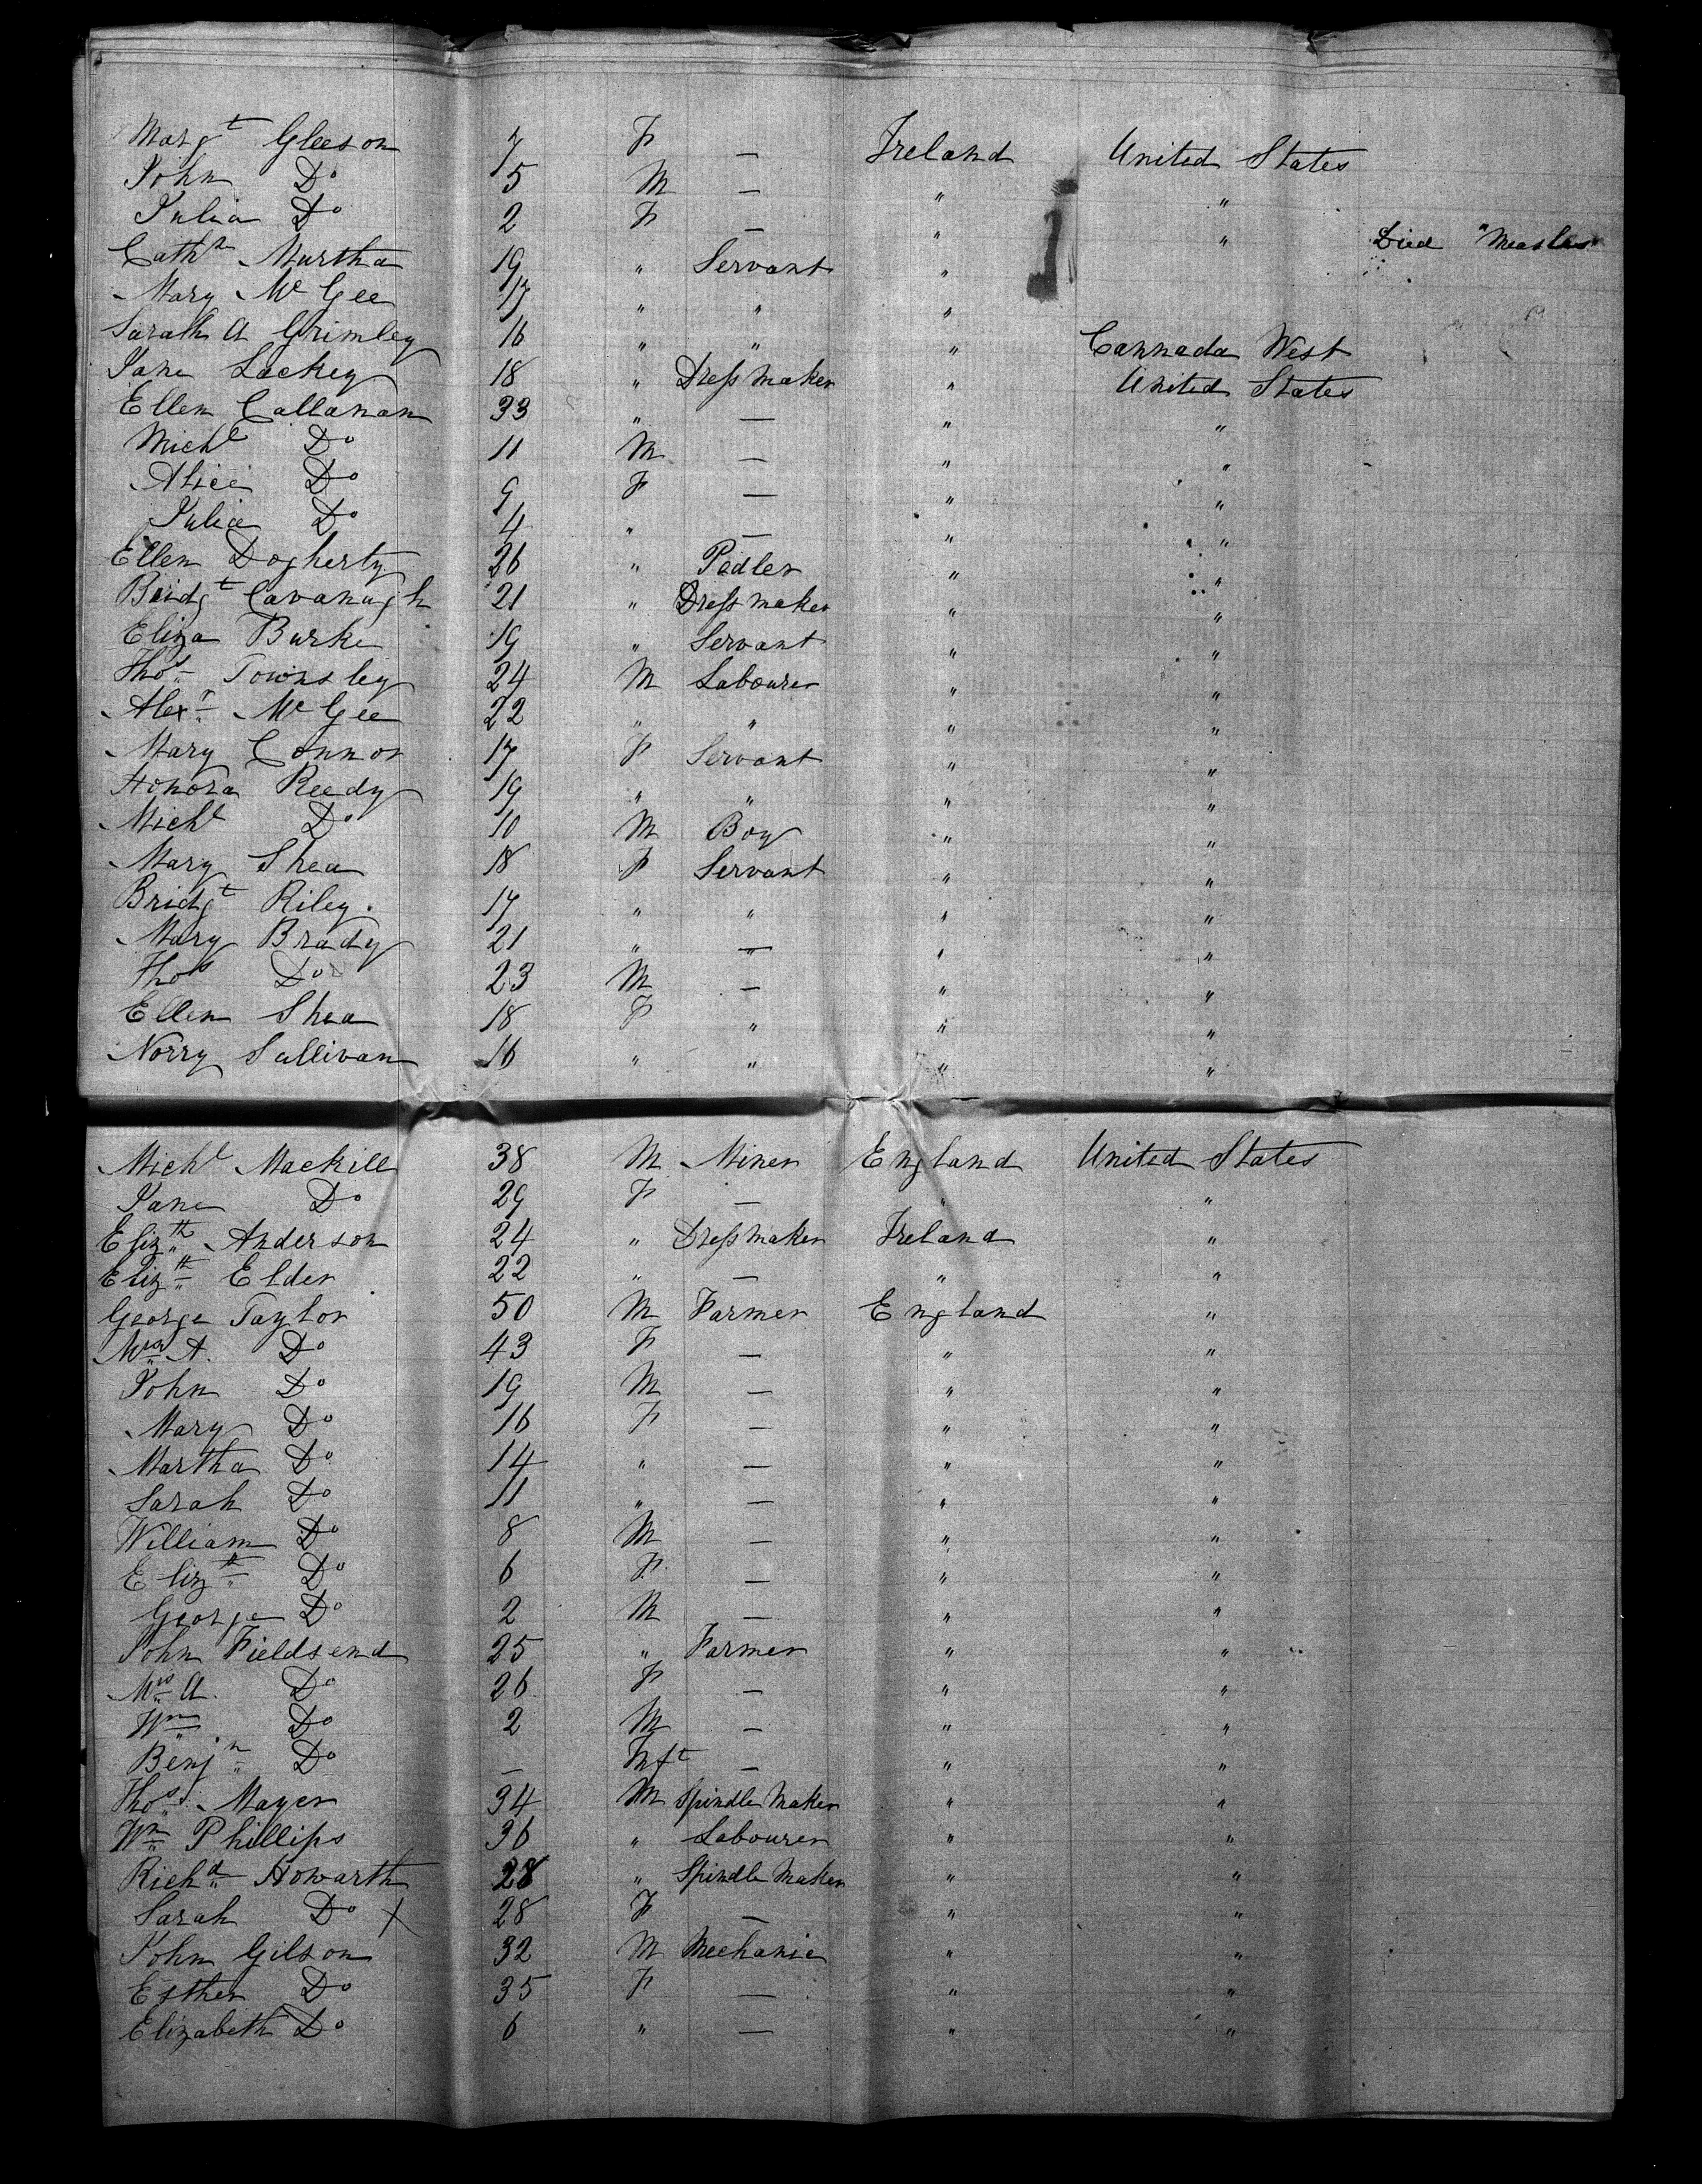 Margt Gleeson 7 F — Ireland United States
John Do 5 M — " "
Julia Do 2 F — " " Died "Measles"
Cathn Murtha 19 " Servant "
Mary McGee 17 " " "
Sarah A Grimley 16 " " " Cannada West
Jane Lackey 18 " Dressmaker " United States
Ellen Callanan 33 " — " "
Michl Do 11 M — " "
Alice Do 9 F — " "
Julia Do 4 " — " "
Ellen Dogherty 26 " Pedler " "
Bridgt Cavanagh 21 " Dressmaker " "
Eliza Burke 19 " Servant " "
Thos Townsley 24 M Labourer " "
Alexr McGee 22 " " " "
Mary Connor 17 F Servant " "
Honora Reedy 19 " " " "
Michl Do 10 M Boy " "
Mary Shea 18 F Servant " "
Bridgt Riley 17 " " " "
Mary Brady 21 " — " "
Thos Do 23 M — " "
Ellen Shea 18 F " " "
Norry Sullivan 16 " " " "
Michl Mackill 38 M Miner England United States
Jane Do 29 F — " "
Elizth Anderson 24 " Dressmaker Ireland "
Elizth Elder 22 " — " "
George Taylor 50 M Farmer England "
Mrs A. Do 43 F — " "
John Do 19 M — " "
Mary Do 16 F — " "
Martha Do 14 " — " "
Sarah Do 11 " — " "
William Do 8 M — " "
Elizth Do 6 F — " "
George Do 2 M — " "
John Fieldsend 25 " Farmer " "
Mrs A. Do 26 F — " "
Wm Do 2 M — " "
Benjn Do — Inft — " "
Thos Mayer 34 M Spindle Maker " "
Wm Phillips 36 " Labourer " "
Richd Howarth 28 " Spindle Maker " "
Sarah Do X 28 F — " "
John Gilson 32 M Mechanic " "
Esther Do 35 F — " "
Elizabeth Do 6 " — " "